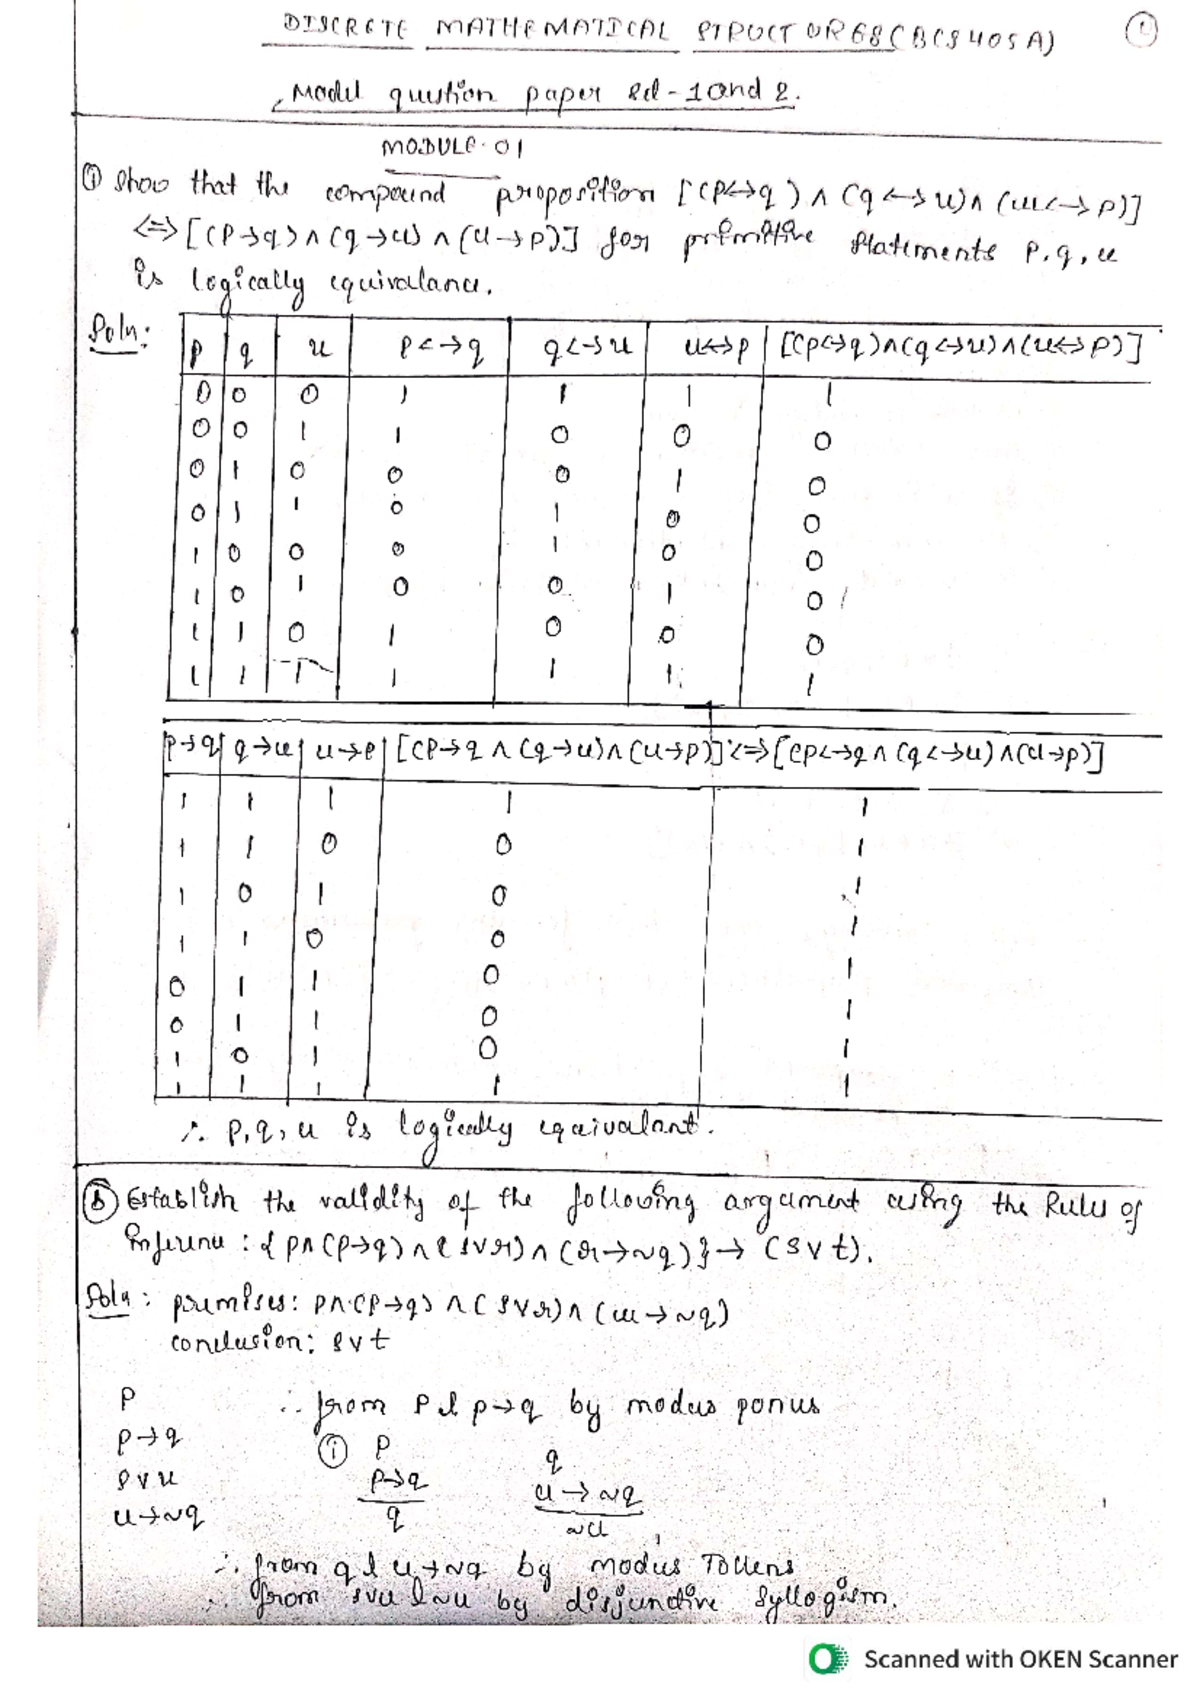 DISCRETE MATHEMATICAL STRUCTURES (BCS405A)
Model question paper set-1 and 2.
MODULE-01
① Show that the compound proposition [(p↔q) ∧ (q↔r) ∧ (r↔p)]
⇔ [(p→q) ∧ (q→r) ∧ (r→p)] for primitive statements p, q, r
is logically equivalance.
Soln:
p q r p↔q q↔r r↔p [(p↔q)∧(q↔r)∧(r↔p)]
0 0 0 1 1 1 1
0 0 1 1 0 0 0
0 1 0 0 0 1 0
0 1 1 0 1 0 0
1 0 0 0 1 0 0
1 0 1 0 0 1 0
1 1 0 1 0 0 0
1 1 1 1 1 1 1
p→q q→r r→p [(p→q ∧ (q→r)∧(r→p)] ⇔ [(p↔q ∧ (q↔r) ∧(r→p)]
1 1 1 1 1
1 1 0 0 1
1 0 1 0 1
1 1 0 0 1
0 1 1 0 1
0 1 1 0 1
1 0 1 0 1
1 1 1 1 1
∴ p, q, r is logically equivalant.
ⓑ Establish the validity of the following argument using the Rules of
inference : { p∧(p→q) ∧ (s∨r) ∧ (r→~q) } → (s∨t).
Soln : premises: p∧(p→q) ∧ (s∨r) ∧ (r→~q)
conclusion: s∨t
p ∴ from p & p→q by modus ponus
p→q ① p q
s∨r p→q r→~q
r→~q q ~r
∴ from q & r→~q by modus Tollens
∴ from s∨r & ~r by disjunctive syllogism.
Scanned with OKEN Scanner